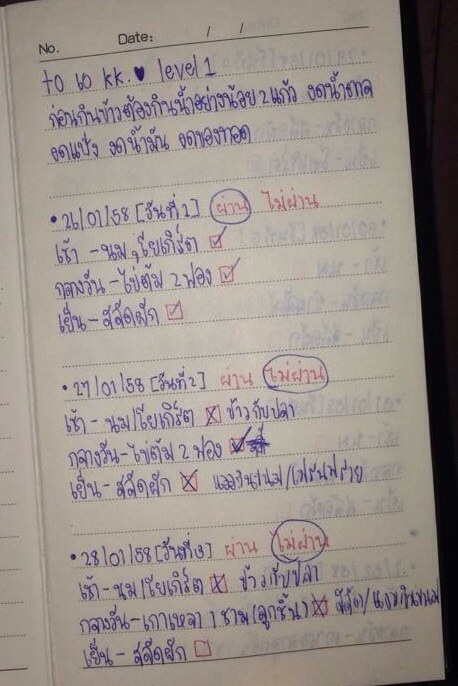 No. Date: / /
to 60 kk. ♥ level 1
ก่อนกินข้าวต้องกินน้ำอย่างน้อย 2 แก้ว งดน้ำตาล
งดแป้ง งดน้ำมัน งดของทอด
• 26/01/58 [วันที่ 1] ผ่าน ไม่ผ่าน
เช้า - นม, โยเกิร์ต ☑
กลางวัน - ไข่ต้ม 2 ฟอง ☑
เย็น - สลัดผัก ☑
• 27/01/58 [วันที่ 2] ผ่าน ไม่ผ่าน
เช้า - นม/โยเกิร์ต ☒ ข้าวกับปลา
กลางวัน - ไข่ต้ม 2 ฟอง ☑
เย็น - สลัดผัก ☒ แอบกินขนม/เฟรนฟราย
• 28/01/58 [วันที่ 3] ผ่าน ไม่ผ่าน
เช้า - นม/โยเกิร์ต ☒ ข้าวกับปลา
กลางวัน - เกาเหลา 1 ชาม (ลูกชิ้น) ☒ สลัด/แอบกินขนม
เย็น - สลัดผัก ☐